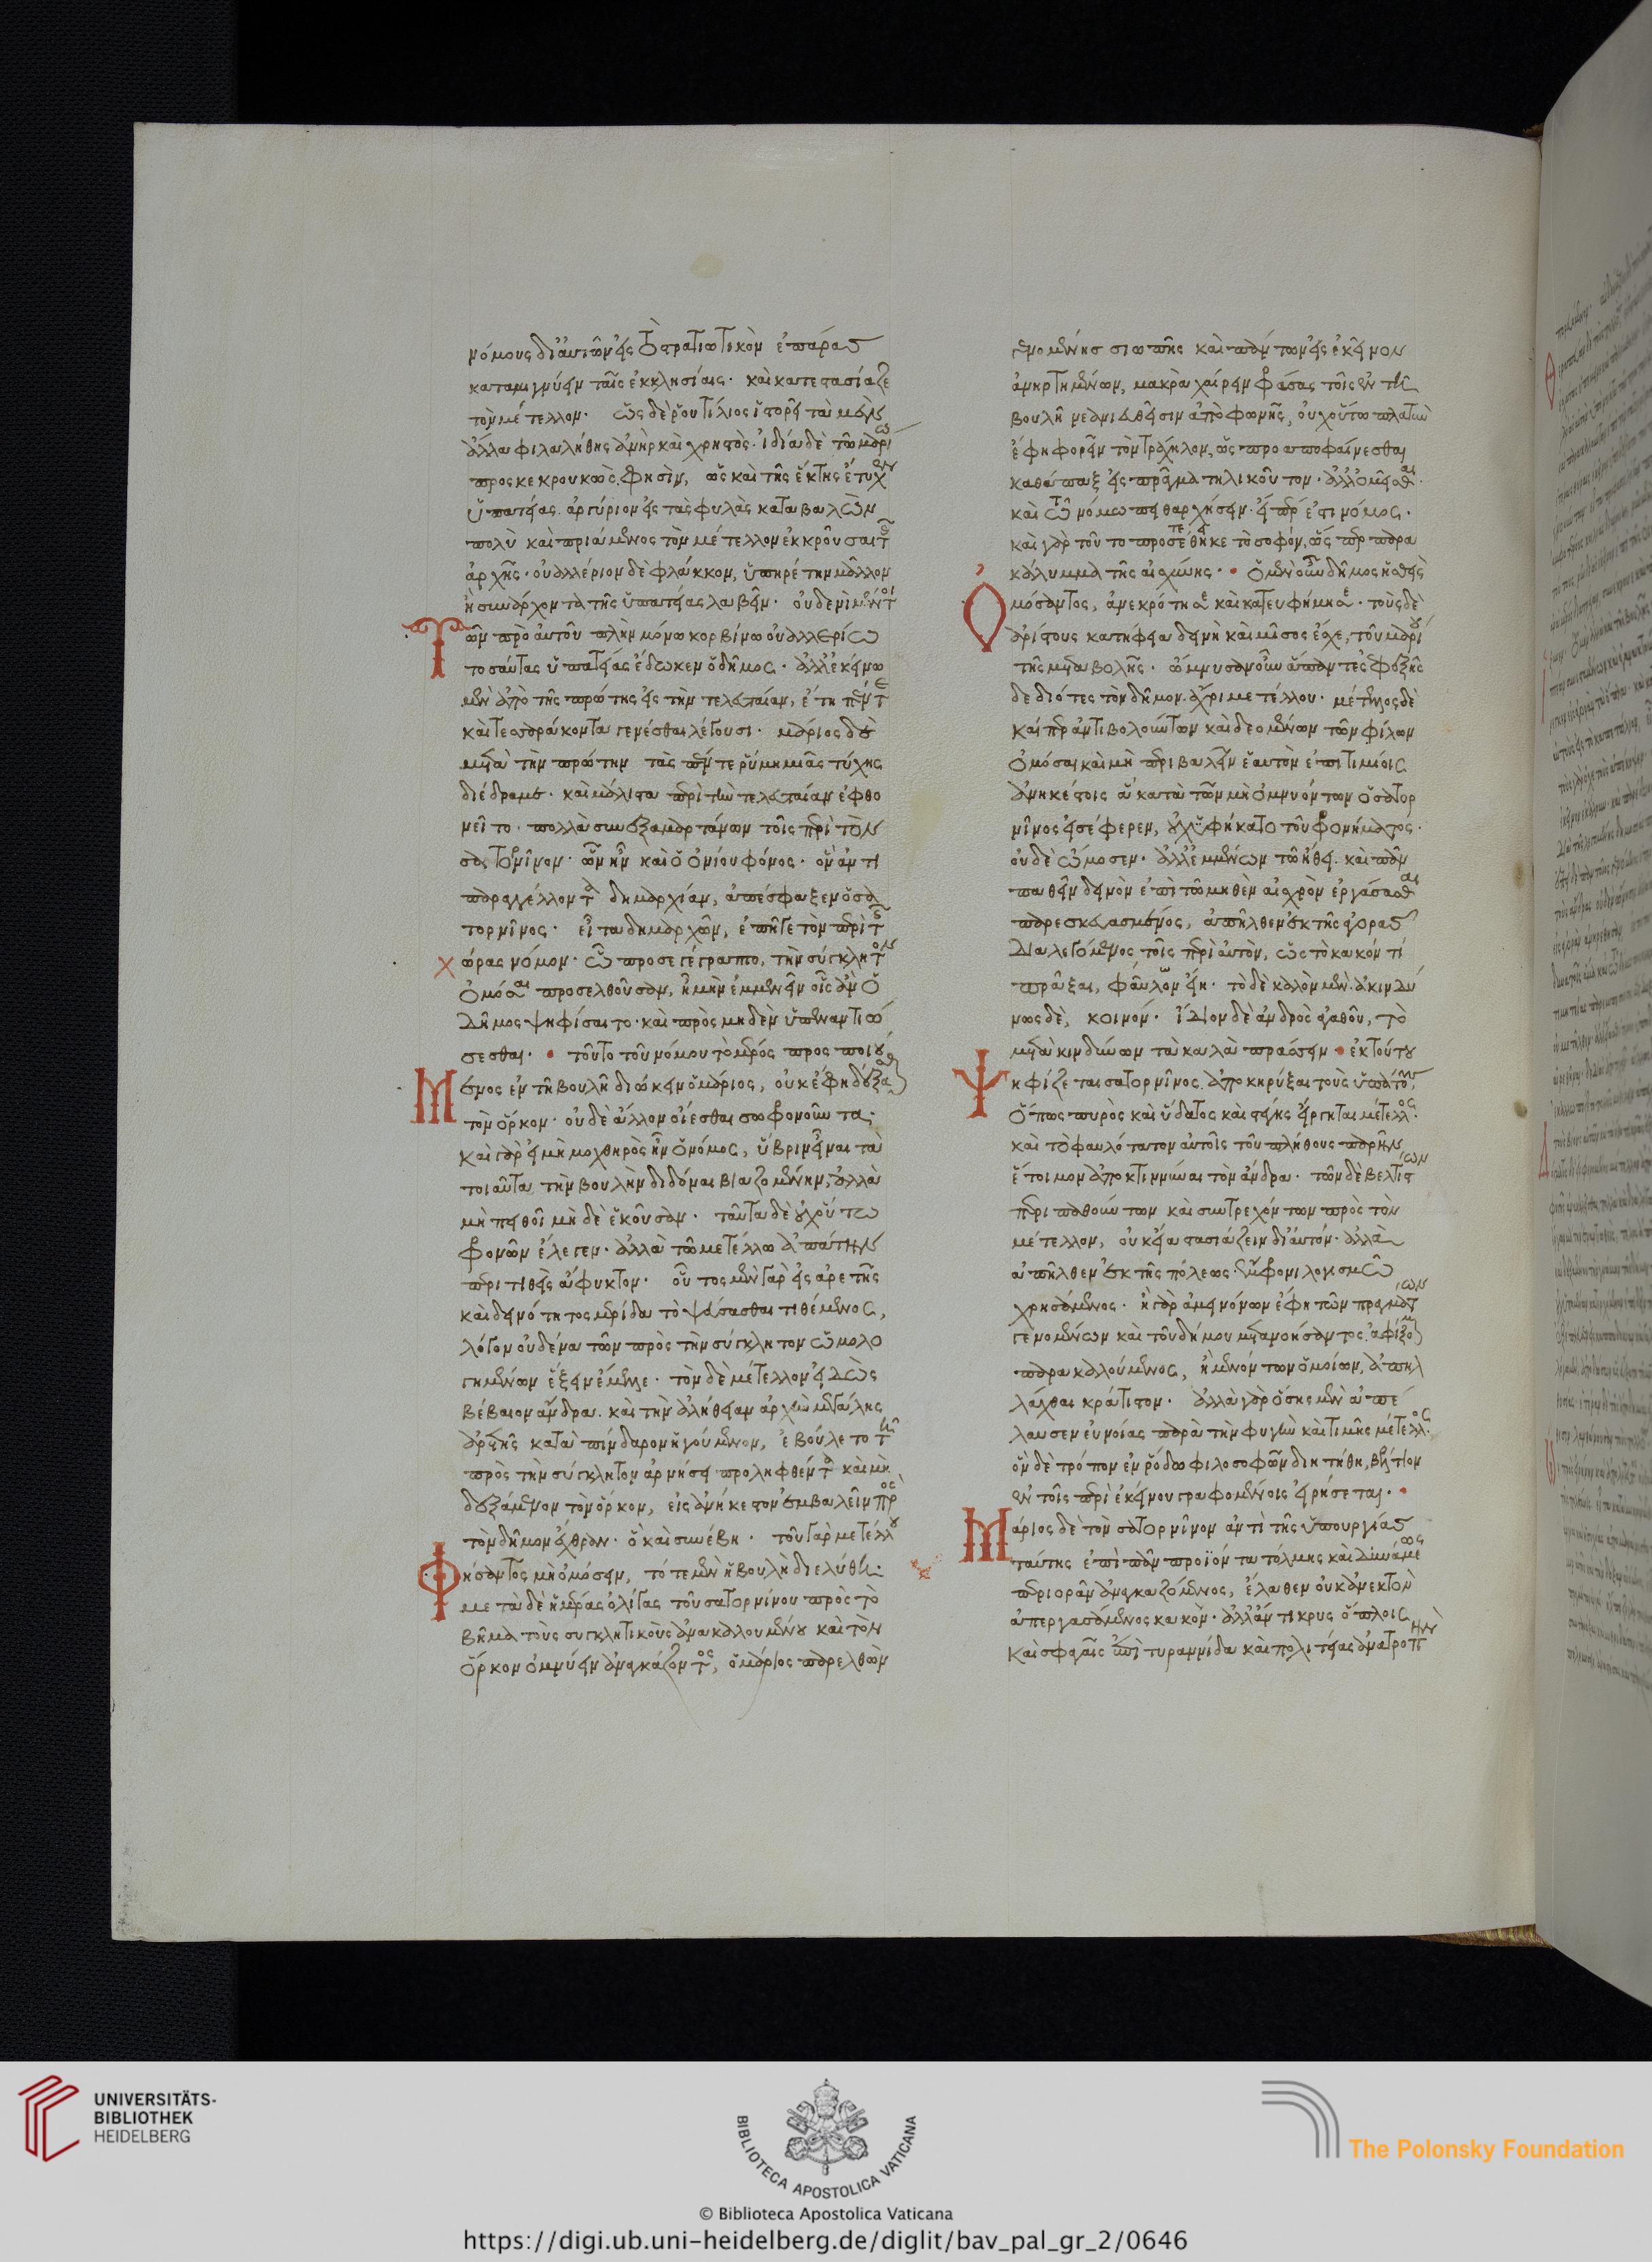 νόμους δι' αὐτῶν εἰς τὸ στρατιωτικὸν ἐπάρας
καταμιγνύειν ταῖς ἐκκλησίαις· καὶ κατεστασίαζε
τὸν μέτελλον· ὡς δὲ ῥουτίλιος ἱστορεῖ τὰ μὲν
ἄλλα φιλαλήθης ἀνὴρ καὶ χρηστὸς· ἰδία δὲ τῶ μαρίω
προσκεκρουκὼς. φησὶν, ὡς καὶ τῆς ἕκτης ἔτυχεν
ὑπατείας. ἀργύριον εἰς τὰς φυλὰς καταβαλὼν
πολὺ καὶ πριάμενος τὸν μέτελλον ἐκκροῦσαι τῆς
ἀρχῆς· οὐαλλέριον δὲ φλάκκον, ὑπηρέτην μᾶλλον
ἢ συνάρχοντα τῆς ὑπατείας λαβεῖν· οὐδενὶ μέντοι
τῶν πρὸ αὐτοῦ πλὴν μόνω κορβίνω οὐαλλερίω
τοσαύτας ὑπατείας ἔδωκεν ὁ δῆμος· ἀλλ' ἐκείνω
μὲν ἀπὸ τῆς πρώτης εἰς τὴν τελευταίαν, ἔτη πέντε
καὶ τεσσαράκοντα γενέσθαι λέγουσι· μάριος δὲ
μετὰ τὴν πρώτην τὰς πέντε ῥύμη μιᾶς τύχης
διέδραμε· καὶ μάλιστα περὶ τὴν τελευταίαν ἐφθο
νεῖτο· πολλὰ συνεξαμαρτάνων τοῖς περὶ τὸν
σατορνῖνον· ὧν ἦν καὶ ὁ νονίου φόνος· ὃν ἀντι
παραγγέλλοντα δημαρχίαν, ἀπέσφαξεν ὁ σα
τορνῖνος· εἶτα δημαρχῶν, ἐπῆγε τὸν περὶ τῆς
χώρας νόμον· ὧ προσεγέγραπτο, τὴν σύγκλητον
ὀμόσαι προσελθοῦσαν, ἦ μὴν ἐμμενεῖν οἷς ἂν ὁ
δῆμος ψηφίσαιτο· καὶ πρὸς μηδὲν ὑπεναντιώ
σεσθαι· τοῦτο τοῦ νόμου τὸ μέρος προσποιού
μενος ἐν τῆ βουλῆ διώκειν ὁ μάριος, οὐκ ἔφη δέξασθαι
τὸν ὅρκον· οὐδὲ ἄλλον οἴεσθαι σωφρονοῦντα·
καὶ γὰρ εἰ μὴ μοχθηρὸς ἦν ὁ νόμος, ὕβριν εἶναι τὰ
τοιαῦτα τὴν βουλὴν διδόναι βιαζομένην, ἀλλὰ
μὴ πειθοῖ μηδὲ ἑκοῦσαν· ταῦτα δὲ οὐχ οὕτω
φρονῶν ἔλεγεν· ἀλλὰ τῶ μετέλλω ἀπάτην
περιτιθεὶς ἄφυκτον· οὗτος μὲν γὰρ εἰς ἀρετῆς
καὶ δεινότητος μερίδα τὸ ψεύσασθαι τιθέμενος,
λόγον οὐδένα τῶν πρὸς τὴν σύγκλητον ὡμολο
γημένων ἕξειν ἔμελλε· τὸν δὲ μέτελλον εἰδὼς
βέβαιον ἄνδρα. καὶ τὴν ἀλήθειαν ἀρχὴν μεγάλης
ἀρετῆς κατὰ πίνδαρον ἡγούμενον, ἐβούλετο τῆ
πρὸς τὴν σύγκλητον ἀρνήσει προληφθέντα καὶ μὴ
δεξάμενον τὸν ὅρκον, εἰς ἀνήκεστον ἐμβαλεῖν πρὸς
τὸν δῆμον ἔχθραν· ὃ καὶ συνέβη· τοῦ γὰρ μετέλλου
φήσαντος μὴ ὀμόσειν, τότε μὲν ἡ βουλὴ διελύθη·
μετὰ δὲ ἡμέρας ὀλίγας τοῦ σατορνίνου πρὸς τὸ
βῆμα τοὺς συγκλητικοὺς ἀνακαλουμένου καὶ τὸν
ὅρκον ὀμνύειν ἀναγκάζοντος, ὁ μάριος παρελθὼν
γενομένης σιωπῆς καὶ πάντων εἰς ἐκεῖνον
ἀνηρτημένων, μακρὰν χαίρειν φράσας τοῖς ἐν τῆ
βουλῆ νεανιευθεῖσιν ἀπὸ φωνῆς, οὐχ οὕτω πλατὺν
ἔφη φορεῖν τὸν τράχηλον, ὡς προαποφαίνεσθαι
καθάπαξ εἰς πρᾶγμα τηλικοῦτον· ἀλλ' ὀμεῖσθαι·
καὶ τῶ νόμω πειθαρχήσειν· εἴπερ ἔστι νόμος·
καὶ γὰρ τοῦτο προσέθηκε τὸ σοφὸν, ὥσπερ παρα
κάλυμμα τῆς αἰσχύνης· ὁ μὲν οὖν δῆμος ἡσθεὶς
ὀμόσαντος, ἀνεκρότησε καὶ κατευφήμησε· τοὺς δὲ
ἀρίστους κατήφεια δεινὴ καὶ μῖσος ἔσχε, τοῦ μαρίου
τῆς μεταβολῆς· ὤμνυσαν οὖν ἅπαντες ἐφεξῆς
δεδιότες τὸν δῆμον. ἄχρι μετέλλου· μέτελλος δὲ
καίπερ ἀντιβολούντων καὶ δεομένων τῶν φίλων
ὀμόσαι καὶ μὴ περιβαλεῖν ἑαυτὸν ἐπιτιμίοις
ἀνηκέστοις ἃ κατὰ τῶν μὴ ὀμνυόντων ὁ σατορ
νῖνος εἰσέφερεν, οὐχ ὑφήκατο τοῦ φρονήματος·
οὐδὲ ὤμοσεν· ἀλλ' ἐμμένων τῶ ἤθει. καὶ πᾶν
παθεῖν δεινὸν ἐπὶ τῶ μηθὲν αἰσχρὸν ἐργάσασθαι
παρεσκευασμένος, ἀπῆλθεν ἐκ τῆς ἀγορᾶς
διαλεγόμενος τοῖς περὶ αὐτὸν, ὡς τὸ κακόν τι
πρᾶξαι, φαῦλον εἴη· τὸ δὲ καλὸν μὲν. ἀκινδύ
νως δὲ, κοινόν· ἴδιον δὲ ἀνδρὸς ἀγαθοῦ, τὸ
μετὰ κινδύνων τὰ καλὰ πράσσειν· ἐκ τούτου
ψηφίζεται σατορνῖνος. ἀποκηρύξαι τοὺς ὑπάτους,
ὅπως πυρὸς καὶ ὕδατος καὶ στέγης εἴργηται μέτελλος·
καὶ τὸ φαυλότατον αὐτοῖς τοῦ πλήθους παρῆν
ἕτοιμον ἀποκτιννύναι τὸν ἄνδρα· τῶν δὲ βελτίστων
περιπαθούντων καὶ συντρεχόντων πρὸς τὸν
μέτελλον, οὐκ εἴα στασιάζειν δι' αὐτόν· ἀλλὰ
ἀπῆλθεν ἐκ τῆς πόλεως ἔμφρονι λογισμῶ
χρησάμενος· ἢ γὰρ ἀμεινόνων ἔφη τῶν πραγμάτων
γενομένων καὶ τοῦ δήμου μετανοήσαντος. ἀφίξομαι
παρακαλούμενος, ἢ μενόντων ὁμοίων, ἀπηλ
λάχθαι κράτιστον· ἀλλὰ γὰρ ὅσης μὲν ἀπέ
λαυσεν εὐνοίας παρὰ τὴν φυγὴν καὶ τιμῆς μέτελλος.
ὃν δὲ τρόπον ἐν ῥόδω φιλοσοφῶν διητήθη, βέλτιον
ἐν τοῖς περὶ ἐκείνου γραφομένοις εἰρήσεται·
μάριος δὲ τὸν σατορνῖνον ἀντὶ τῆς ὑπουργίας
ταύτης ἐπὶ πᾶν προϊόντα τόλμης καὶ δυνάμεως
περιορᾶν ἀναγκαζόμενος, ἔλαθεν οὐκ ἀνεκτὸν
ἀπεργασάμενος κακόν· ἀλλ' ἄντικρυς ὅπλοις
καὶ σφαγαῖς ἐπὶ τυραννίδα καὶ πολιτείας ἀνατροπὴν
UNIVERSITÄTS-
BIBLIOTHEK
HEIDELBERG
BIBLIOTECA APOSTOLICA VATICANA
The Polonsky Foundation
© Biblioteca Apostolica Vaticana
https://digi.ub.uni-heidelberg.de/diglit/bav_pal_gr_2/0646